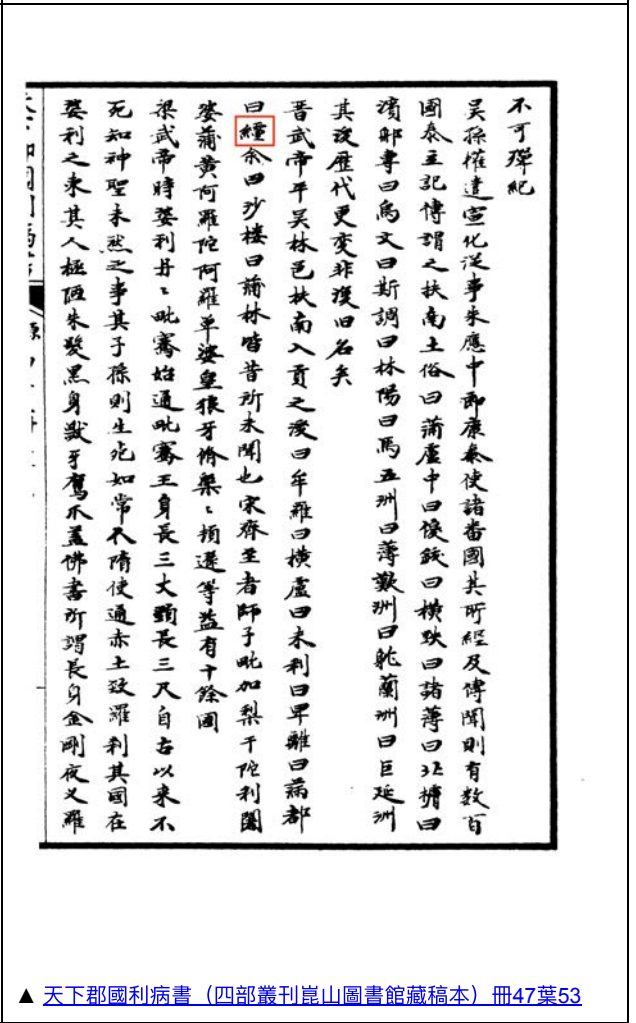 不可殫紀
吳孫權遣宣化從事朱應中郎康泰使諸番國其所經及傳聞則有数百
國泰立記傳謂之扶南土俗曰蒲盧中曰優鈸曰橫趺曰諸薄曰北攎曰
濱那專曰烏文曰斯調曰林陽曰馬五洲曰薄歎洲曰躭蘭洲曰巨延洲
其後歷代更變非復旧名矣
晉武帝平吳林邑扶南入貢之後曰牟羅曰橫盧曰末利曰卑離曰蒲都
曰繵余曰沙楼曰蒲林皆昔所未聞也宋齊至者師子毗加梨干陀利闍
婆蒲黄阿羅陀阿羅单婆皇狼牙脩槃〻頓遜等益有十餘國
梁武帝時婆利丹〻毗騫始通毗騫王身長三丈頸長三尺自古以来不
死知神聖未然之事其子孫則生死如常人隋使通赤土致羅刹其國在
婆利之東其人極陋朱髮黑身獸牙鷹爪蓋佛書所謂長身金剛夜乂羅
▲ 天下郡國利病書（四部叢刊崑山圖書館藏稿本）冊47葉53